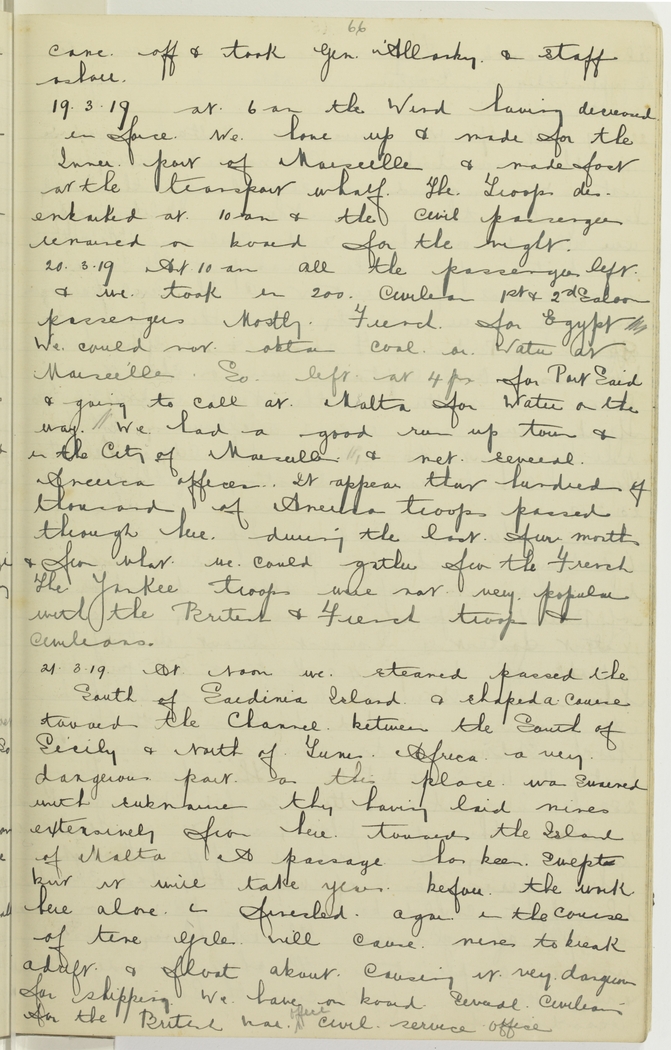 66
came off & took Gen. Allenby & staff
ashore.
19.3.19 at 6 am the Wind having decreased
in force. We hove up & made for the
Inner port of Marseille & made fast
at the transport wharf. The Troops dis-
embarked at 10 am & the civil passengers
remained on board for the night.
20.3.19 At 10 am all the passengers left.
& we took in 200. Civilian 1st & 2nd Saloon
passengers Mostly. French. for Egypt
We could not obtain coal or Water at
Marseille. So left at 4 pm for Port Said
& going to call at Malta for Water on the
way. // We had a good run up town &
in the City of Marseille & met several
America officers. It appears that hundreds of
thousands of America troops passed
through here during the last few months
& from what we could gather from the French
The Yankee troops were not very popular
with the British & French troops &
civilians.
21.3.19 At Noon we steamed passed the
South of Sardinia Island & shaped a course
toward the Channel between the South of
Sicily & North of Tunis Africa a very
dangerous part as this place was swarmed
with submarines they having laid mines
extensively from here towards the Island
of Malta A passage has been Swept
but it will take years before the work
here alone is finished. again in the course
of time gales will cause mines to break
adrift & float about causing it very dangerous
for shipping. We have on board Several Civilians
for the British War. office civil service office